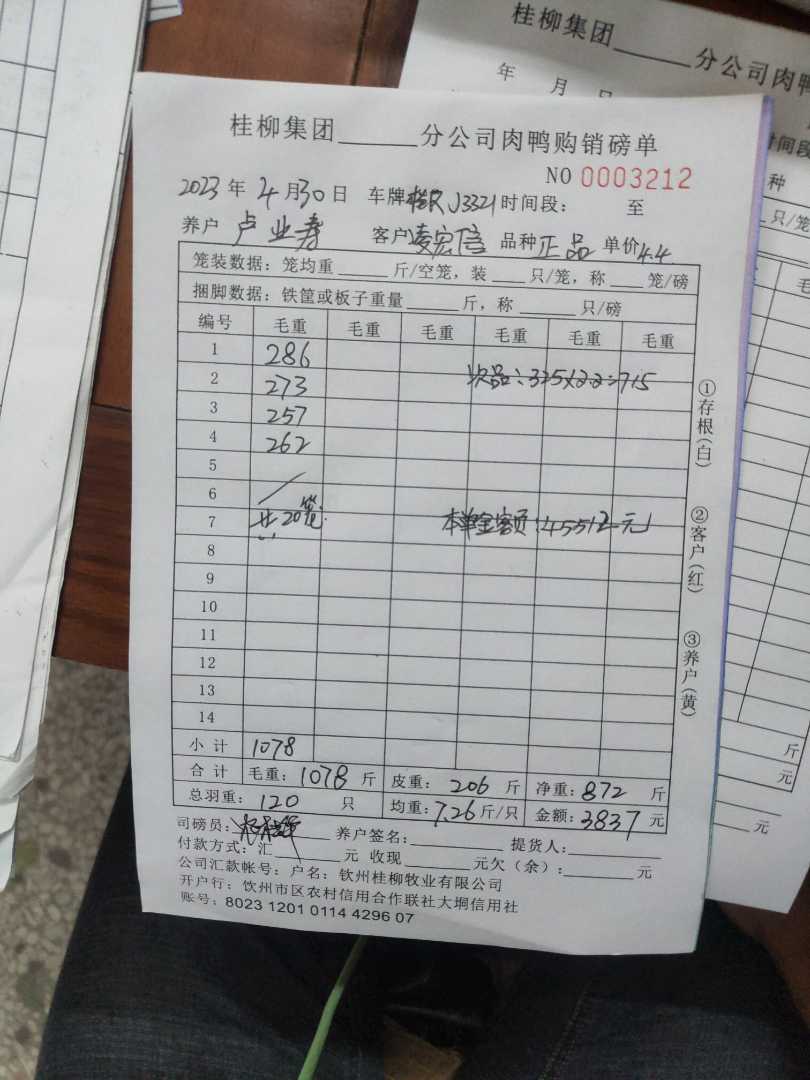 桂柳集团______分公司肉鸭购销磅单
NO 0003212
2023年4月30日 车牌桂R J3321 时间段: 至
养户 卢业寿 客户 凌宏信 品种 正品 单价 4.4
笼装数据: 笼均重 ____ 斤/空笼, 装 ___ 只/笼, 称 ___ 笼/磅
捆脚数据: 铁筐或板子重量 ____ 斤, 称 ____ 只/磅
编号 毛重 毛重 毛重 毛重 毛重 毛重
1 286
2 273 次品: 325×2.2=715
3 257
4 262
5
6
7 共20笼 本单金额: 4552元
8
9
10
11
12
13
14
小计 1078
合计 毛重: 1078 斤 皮重: 206 斤 净重: 872 斤
总羽重: 120 只 均重: 7.26 斤/只 金额: 3837 元
司磅员: 养户签名: 提货人:
付款方式: 汇______元 收现______元欠(余):______元
公司汇款帐号: 户名: 钦州桂柳牧业有限公司
开户行: 钦州市区农村信用合作联社大垌信用社
账号: 8023 1201 0114 4296 07
①存根(白)
②客户(红)
③养户(黄)
桂柳集团______分公司肉鸭
年 月 日
时间段
种
只/笼
斤
元
元